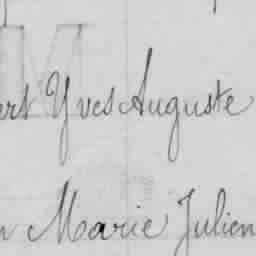 ert Yves Auguste
Marie Julien